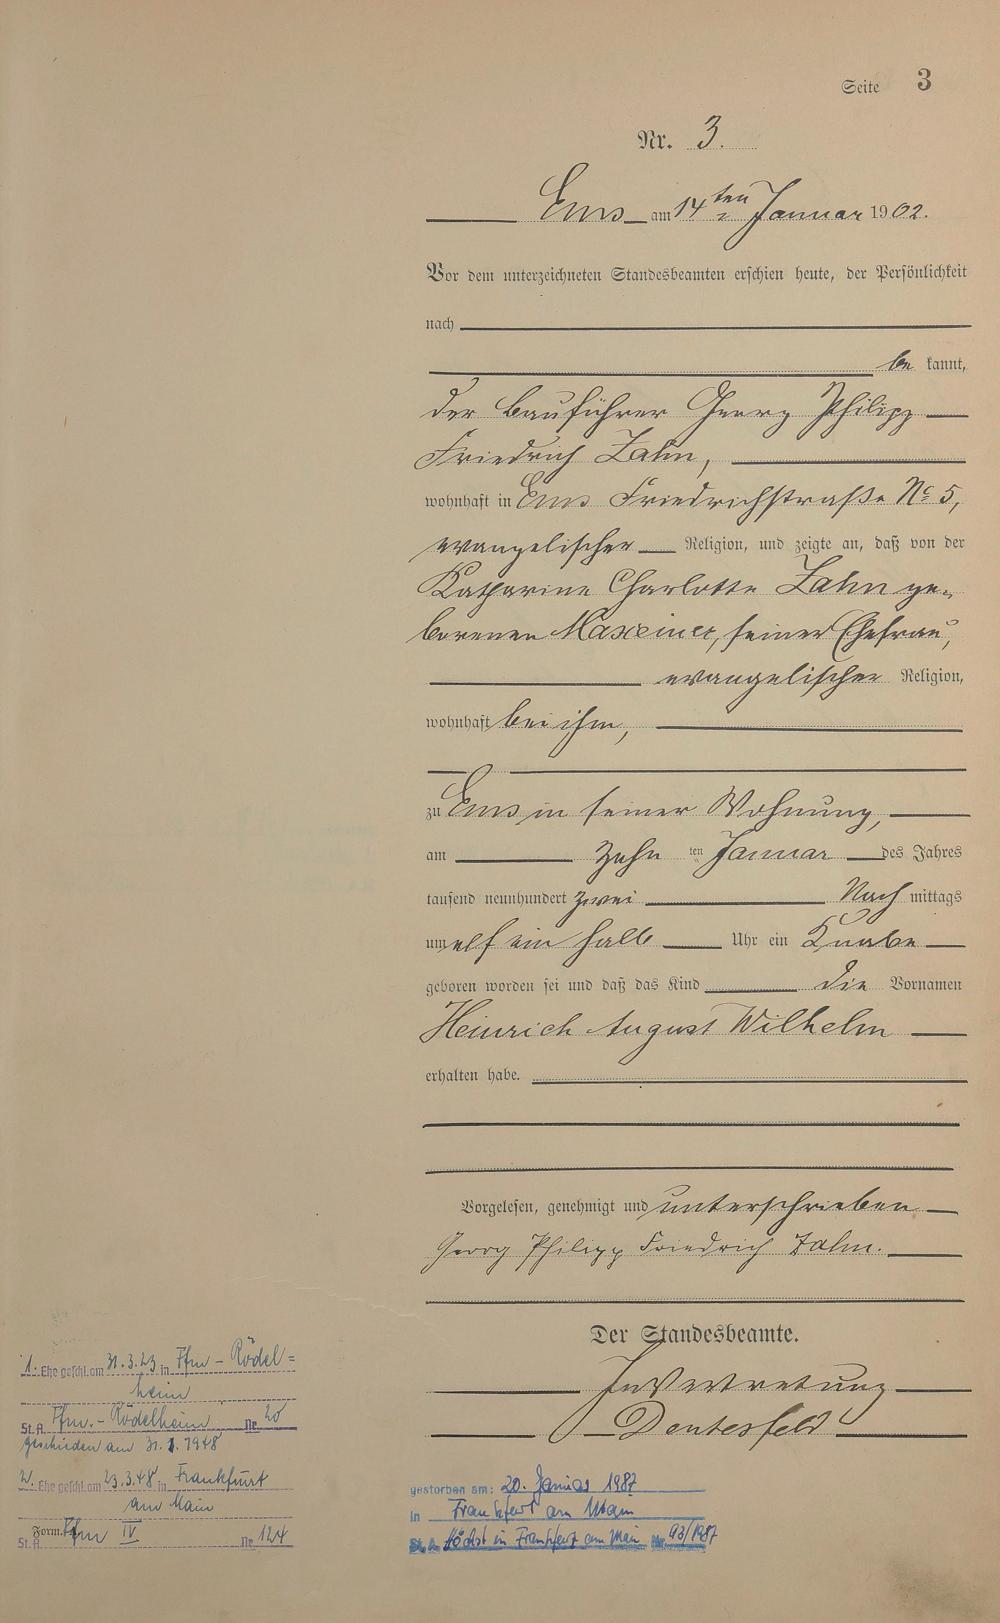 Seite 3
Nr. 3.
Ems am 14ten Januar 1902.
Vor dem unterzeichneten Standesbeamten erschien heute, der Persönlichkeit
nach
be kannt,
der Bauführer Georg Philipp
Friedrich Zahn,
wohnhaft in Ems Friedrichstraße No 5,
evangelischer Religion, und zeigte an, daß von der
Katharine Charlotte Zahn ge-
borenen Maxeiner, seiner Ehefrau,
evangelischer Religion,
wohnhaft bei ihm,
zu Ems in seiner Wohnung,
am zehn ten Januar des Jahres
tausend neunhundert zwei Nach mittags
um elf ein halb Uhr ein Knabe
geboren worden sei und daß das Kind die Vornamen
Heinrich August Wilhelm
erhalten habe.
Vorgelesen, genehmigt und unterschrieben
Georg Philipp Friedrich Zahn.
Der Standesbeamte.
In Vertretung
1. Ehe geschl. am 31.3.23 in Ffm - Rödel=
heim
St.A. Ffm. - Rödelheim Nr. 20
geschieden am 31.1.1948
2. Ehe geschl. am 23.3.48 in Frankfurt
am Main
St.A. Ffm IV Nr. 124
gestorben am: 20. Januar 1987
in Frankfurt am Main
St. A. Höchst in Frankfurt am Main Nr. 93/1987